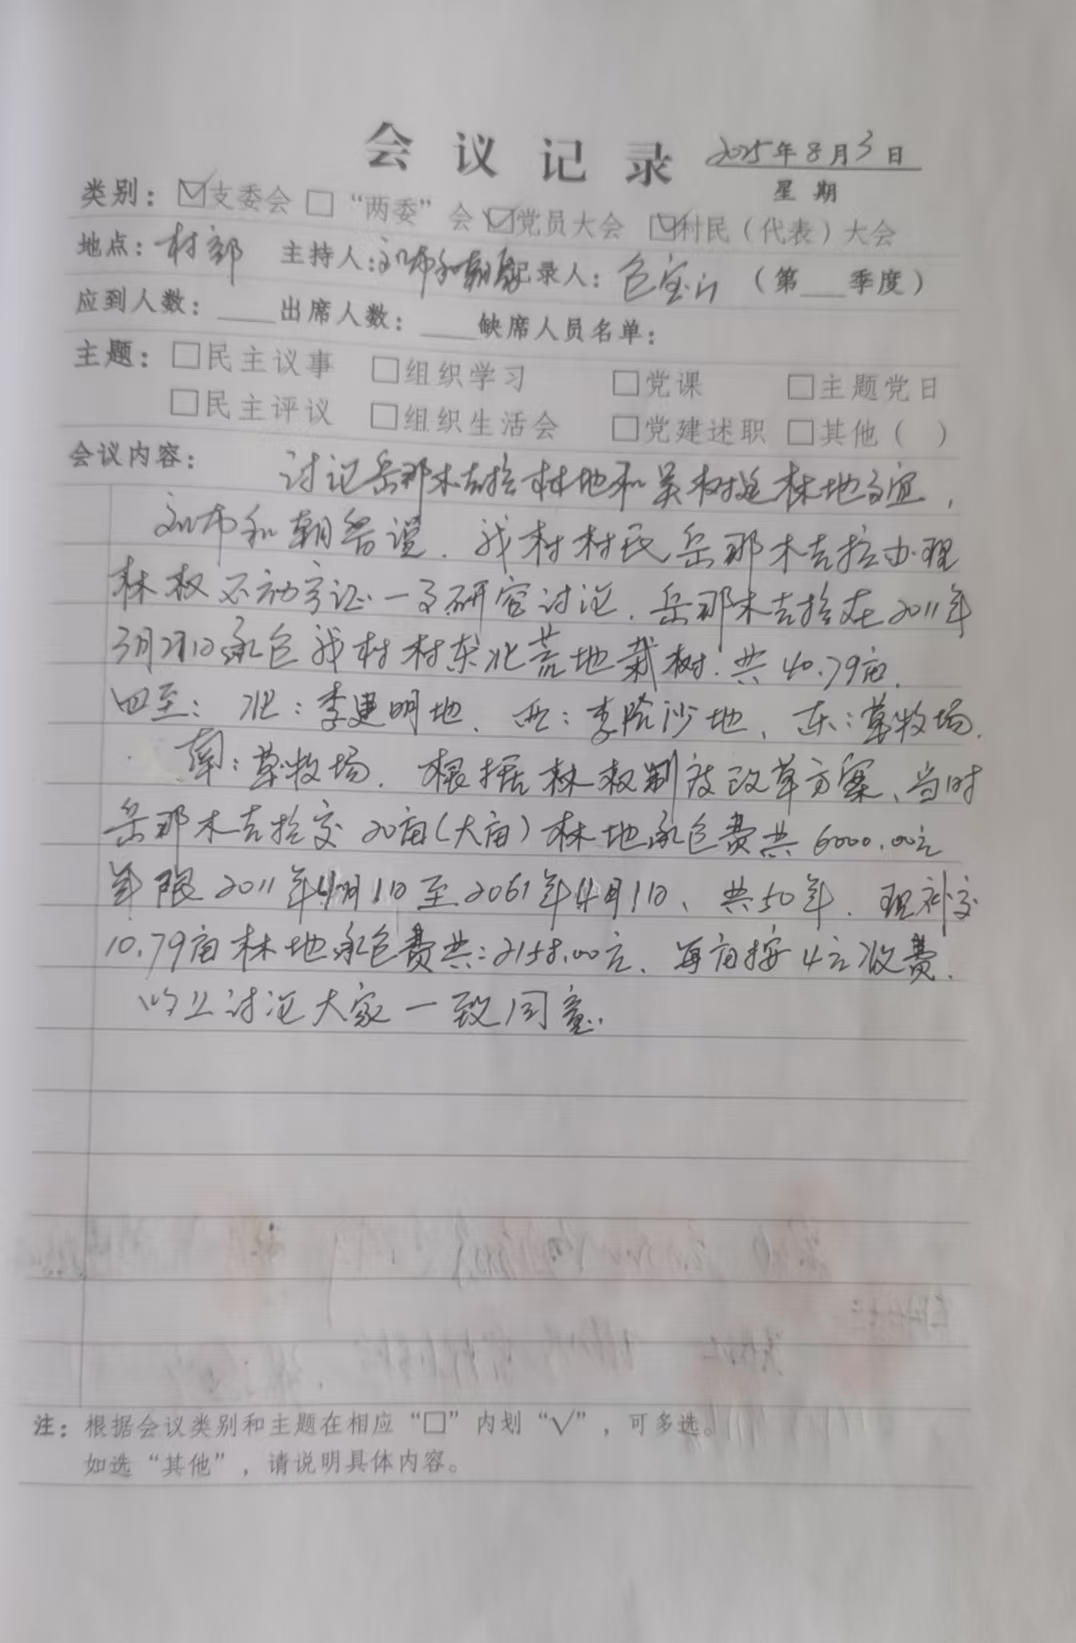 会议记录 2025年8月3日
星期
类别：☑支委会 □“两委”会 ☑党员大会 ☑村民（代表）大会
地点：村部 主持人：刘布和朝鲁 记录人：包宝山 （第___季度）
应到人数：____出席人数：____缺席人员名单：
主题：□民主议事 □组织学习 □党课 □主题党日
□民主评议 □组织生活会 □党建述职 □其他（ ）
会议内容： 讨论岳那木吉拉林地和吴树廷林地事宜，
刘布和朝鲁说，我村村民岳那木吉拉办理
林权不动产证一事研究讨论，岳那木吉拉在2011年
3月27日承包我村村东北荒地栽树，共40.79亩，
四至：北：李建明地、西：李阿沙地、东：草牧场，
南：草牧场，根据林权制度改革方案，当时
岳那木吉拉交20亩（大亩）林地承包费共6000.00元
年限2011年4月1日至2061年4月1日、共50年，现补交
10.79亩林地承包费共：2158.00元、每亩按4元收费，
以上讨论大家一致同意。
注：根据会议类别和主题在相应“□”内划“√”，可多选。
如选“其他”，请说明具体内容。